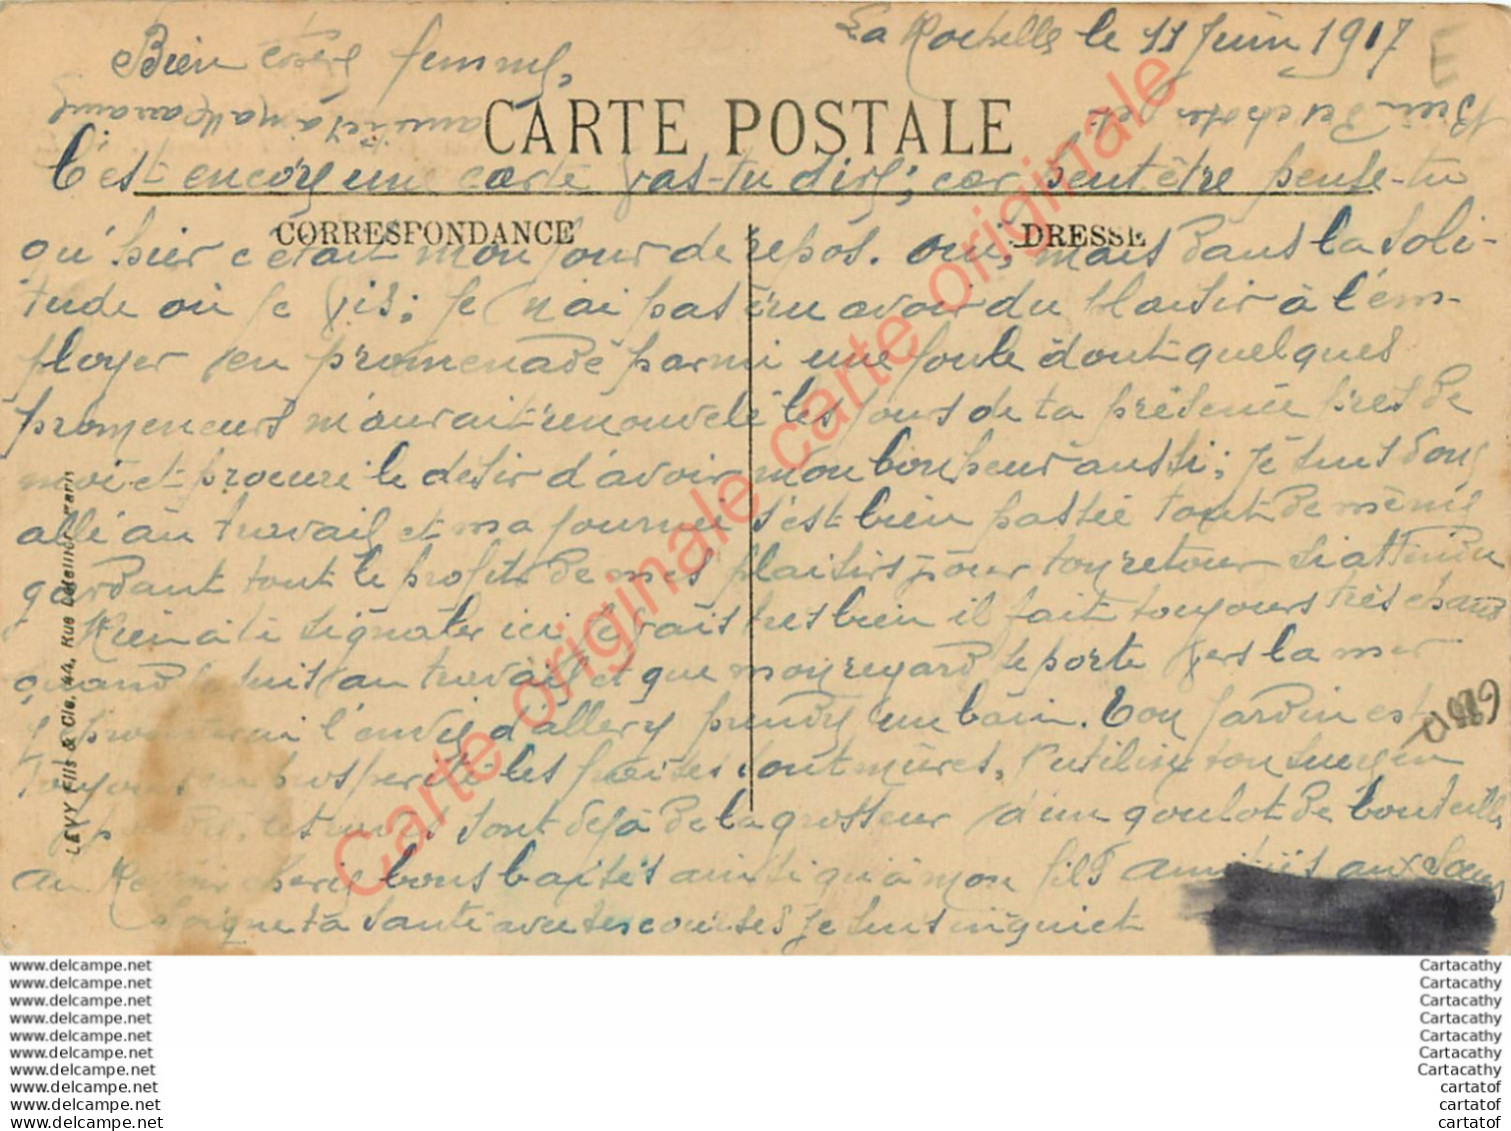 La Rochelle le 11 Juin 1917
Bien chère femme,
CARTE POSTALE
C'est encore une carte vas-tu dire, car peut être pense-tu
CORRESPONDANCE
qu'hier c'était mon jour de repos. oui, mais dans la soli-
tude où je vis; je n'ai pas cru avoir du plaisir à l'em-
ployer en promenade parmi une foule dont quelques
promeneurs m'aurait renouvelé les jours de ta présence près de
moi et procuré le désir d'avoir mon bonheur aussi; je suis donc
allé au travail et ma journée s'est bien passée tout de même
gardant tout le profit de mes plaisirs pour ton retour si attendu
Rien à te signaler ici je vais très bien il fait toujours très chaud
quand je suis au travail et que mon regard se porte vers la mer
l'envie d'aller y prendre un bain. Ton jardin est
toujours en prospérité les fraises sont mûres, j'utilise ton
sont déjà de la grosseur d'un goulot de bouteille
au revoir chérie bons baisers ainsi qu'à mon fils amitiés aux
Soigne ta santé avec tes courses je suis inquiet
LEVY Fils & Cie, 44, Rue Letellier, Paris
Carte originale carte originale Carte originale carte originale
www.delcampe.net
www.delcampe.net
www.delcampe.net
www.delcampe.net
www.delcampe.net
www.delcampe.net
www.delcampe.net
www.delcampe.net
www.delcampe.net
www.delcampe.net
Cartacathy
Cartacathy
Cartacathy
Cartacathy
Cartacathy
Cartacathy
Cartacathy
cartatof
cartatof
cartatof